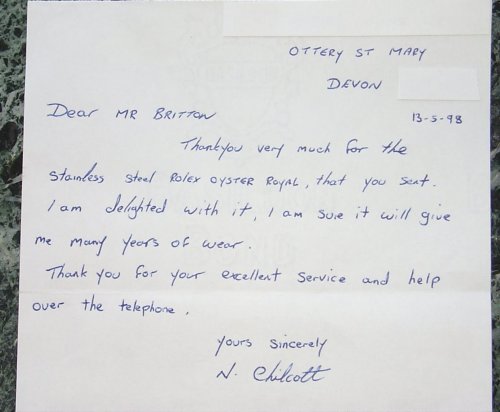 OTTERY ST MARY
DEVON
13-5-98
Dear MR BRITTON
Thankyou very much for the
Stainless Steel ROLEX OYSTER ROYAL, that you sent.
I am delighted with it, I am sure it will give
me many years of wear.
Thank you for your excellent service and help
over the telephone.
yours sincerely
N. Chilcott